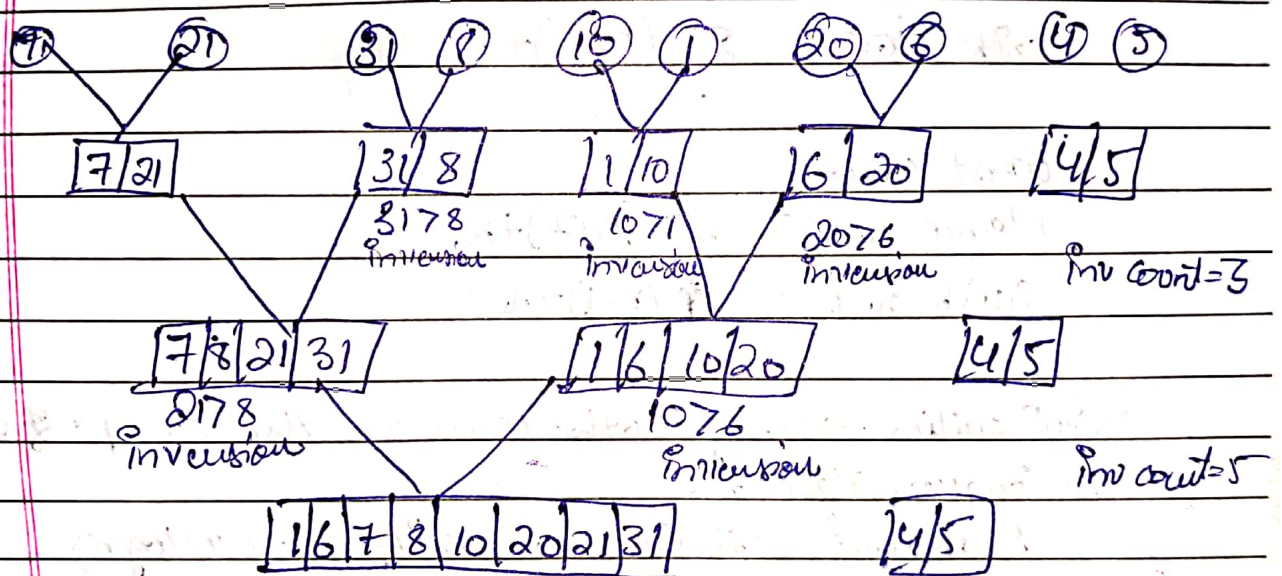 7 21 31 8 10 1 20 6 4 5
7 21 31 8 1 10 6 20 4 5
31>8 10>1 20>6
inversion inversion inversion inv count=3
7 8 21 31 1 6 10 20 4 5
21>8 10>6
inversion inversion inv count=5
1 6 7 8 10 20 21 31 4 5